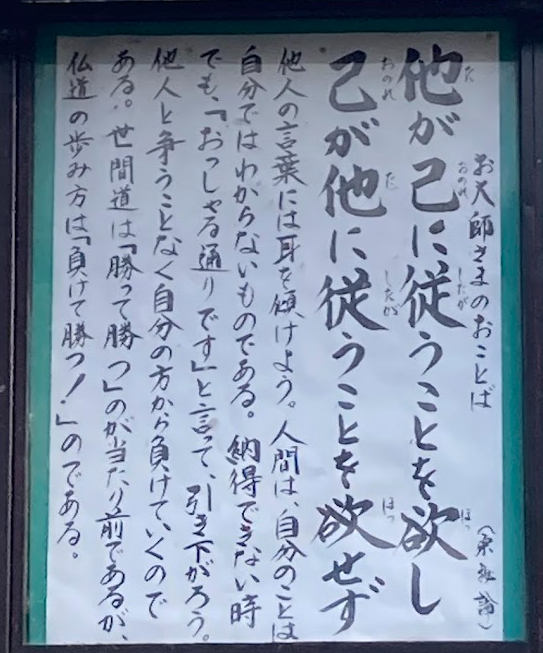 お大師さまのおことば
(宗秘論)
た おのれ したが ほっ
他が己に従うことを欲し
おのれ た したが ほっ
己が他に従うことを欲せず
他人の言葉には耳を傾けよう。人間は、自分のことは
自分ではわからないものである。納得できない時
でも、「おっしゃる通りです」と言って、引き下がろう。
他人と争うことなく自分の方から負けていくので
ある。世間道は「勝って勝つ」のが当たり前であるが、
仏道の歩み方は「負けて勝つ!」のである。